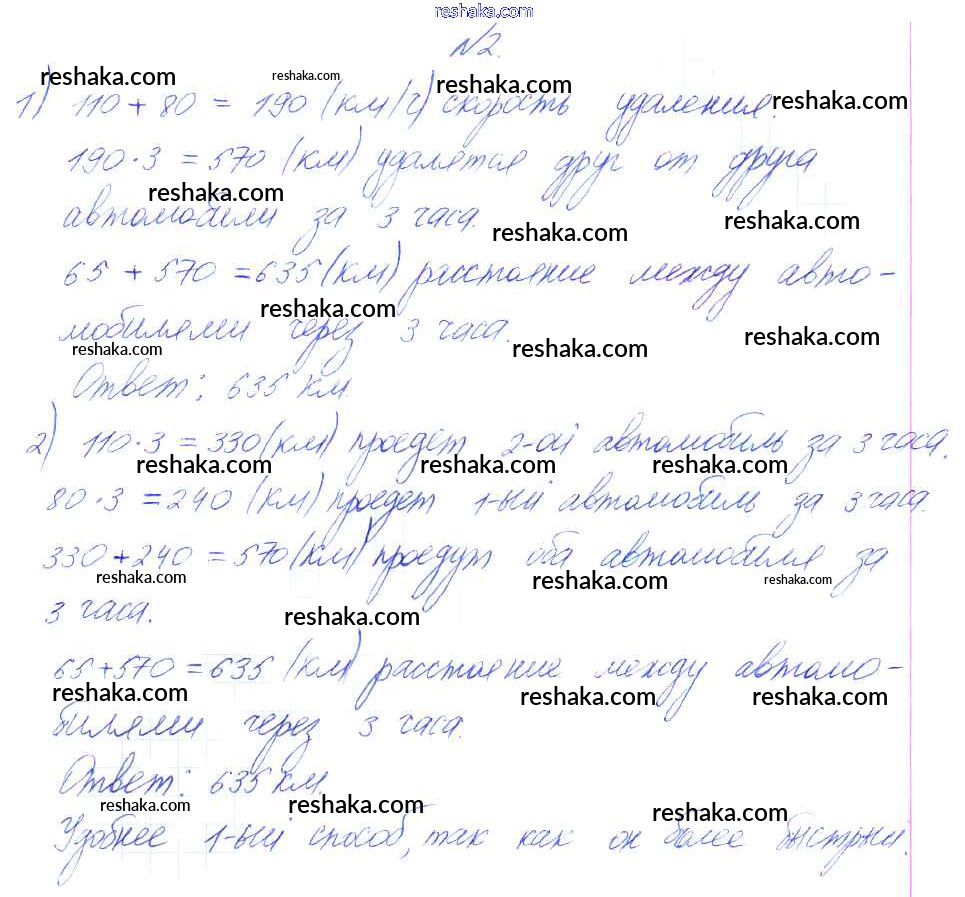 reshaka.com
№2.
reshaka.com reshaka.com reshaka.com reshaka.com
1) 110 + 80 = 190 (км/ч) скорость удаления.
190·3 = 570 (км) удалятся друг от друга
reshaka.com reshaka.com
автомобили за 3 часа.
reshaka.com
65 + 570 = 635 (км) расстояние между авто-
reshaka.com
мобилями через 3 часа.
reshaka.com reshaka.com reshaka.com
Ответ: 635 км.
2) 110·3 = 330 (км) проедет 2-ой автомобиль за 3 часа.
reshaka.com reshaka.com reshaka.com
80·3 = 240 (км) проедет 1-ый автомобиль за 3 часа.
330+240 = 570 (км) проедут оба автомобиля за
reshaka.com reshaka.com reshaka.com
3 часа.
reshaka.com
65+570 = 635 (км) расстояние между автомо-
reshaka.com reshaka.com reshaka.com
билями через 3 часа.
Ответ: 635 км.
reshaka.com reshaka.com reshaka.com
Удобнее 1-ый способ, так как он более быстрый.